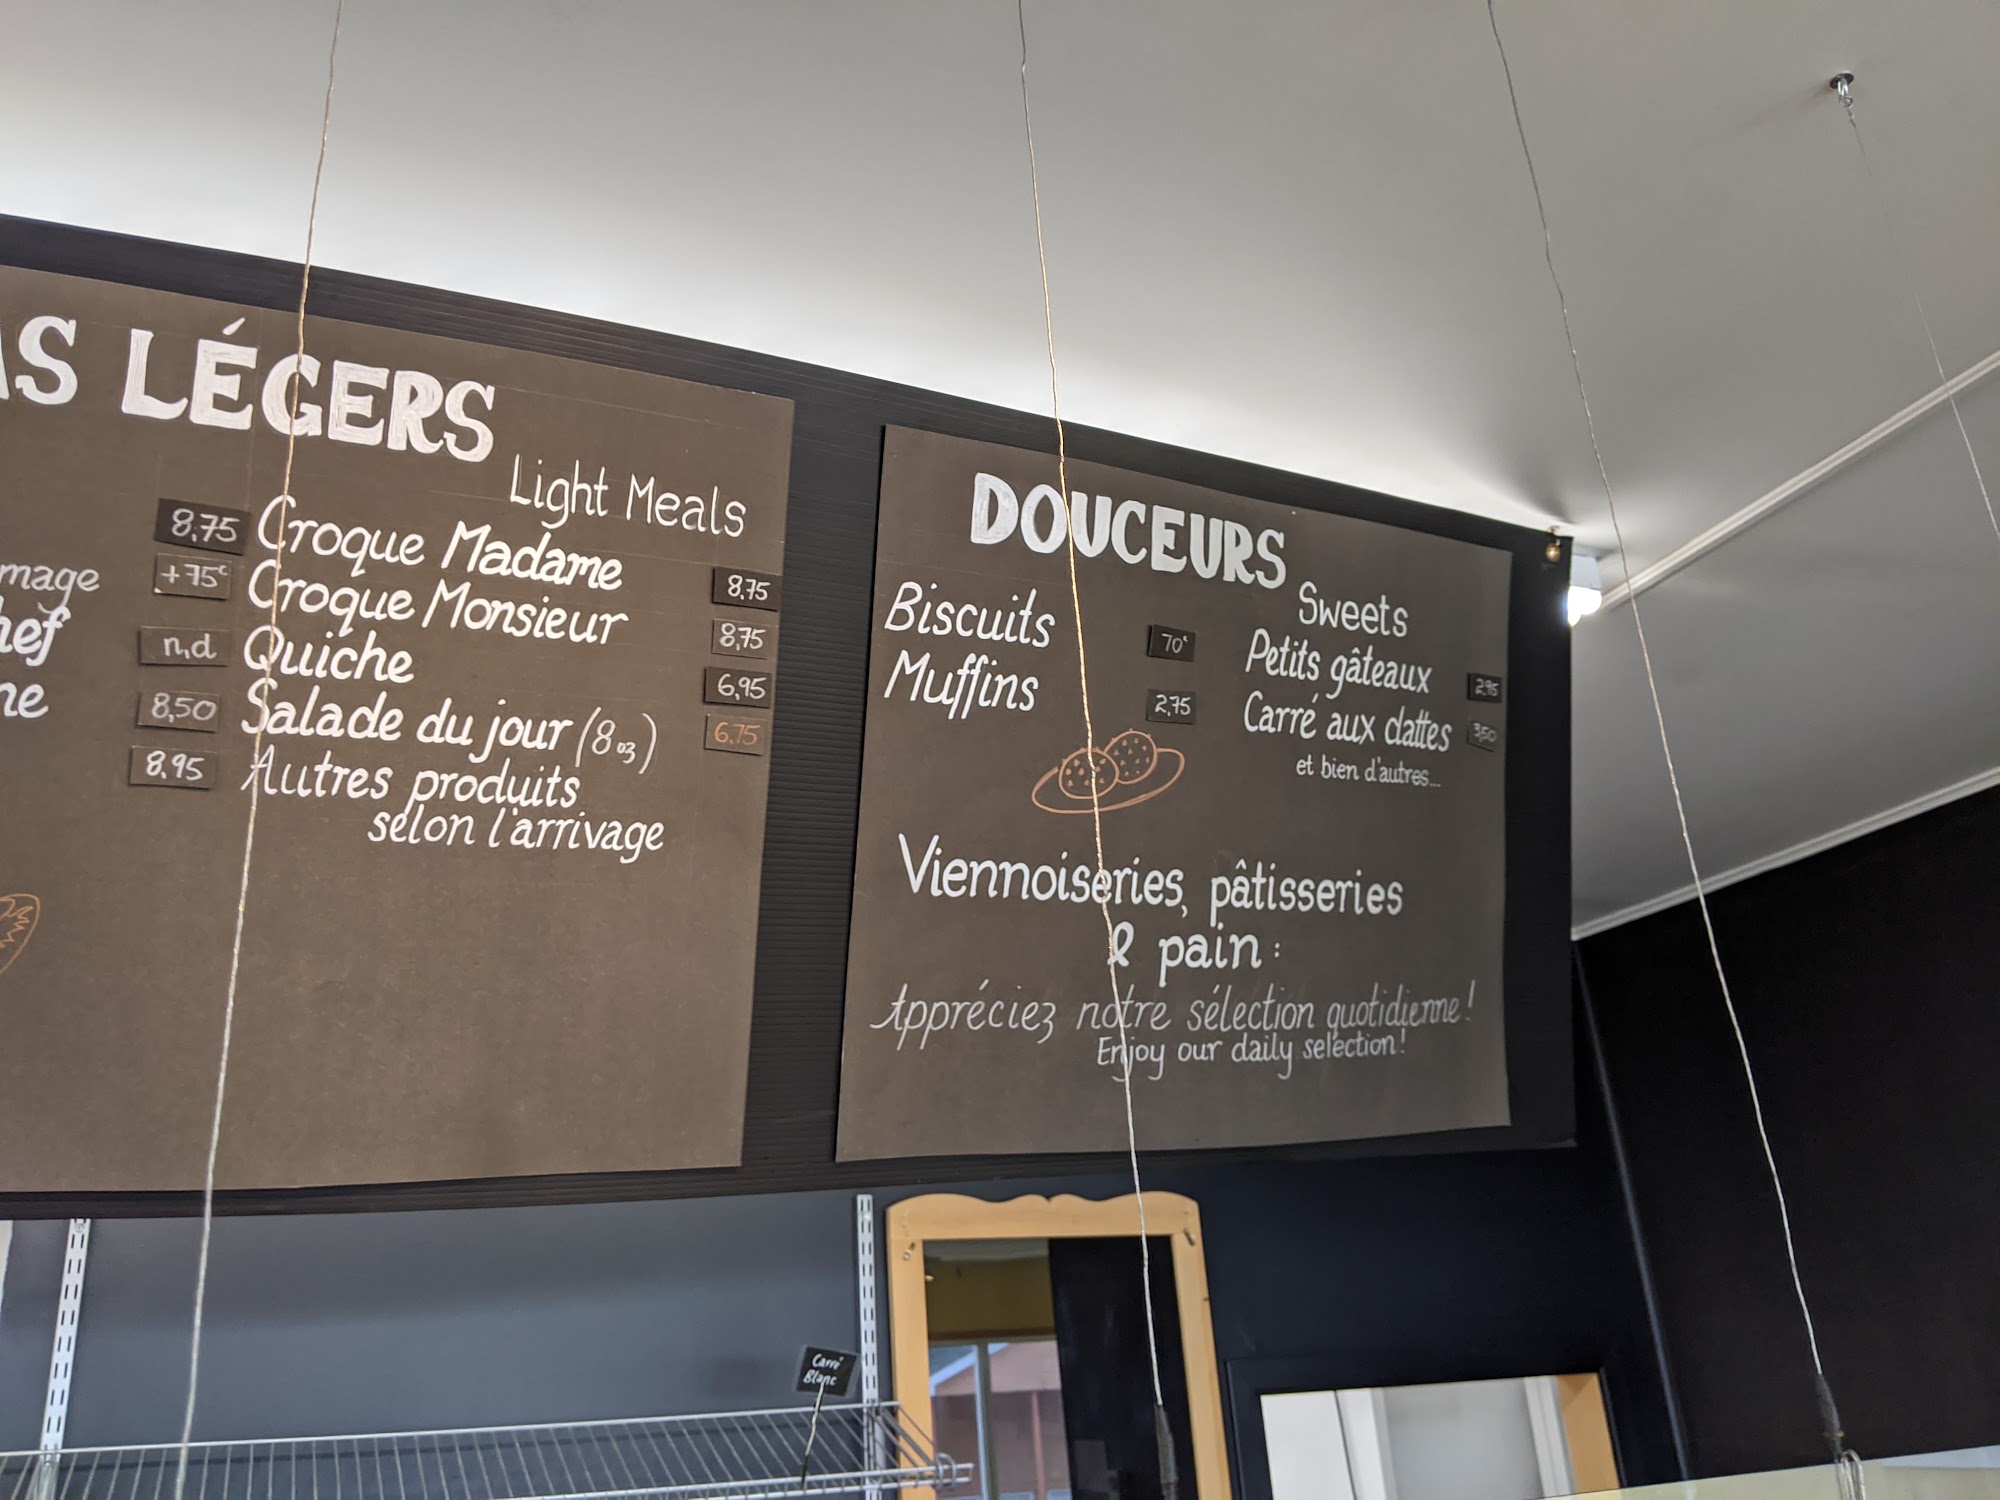 S LÉGERS
Light Meals
8,75
mage +75¢
hef n,d
ne 8,50
8,95
Croque Madame 8,75
Croque Monsieur 8,75
Quiche 6,95
Salade du jour (8 oz) 6,75
Autres produits
selon l'arrivage
DOUCEURS
Sweets
Biscuits 70¢
Muffins 2,75
Petits gâteaux 2,95
Carré aux dattes 3,50
et bien d'autres...
Viennoiseries, pâtisseries
& pain :
Appréciez notre sélection quotidienne !
Enjoy our daily selection !
Carré
Blanc